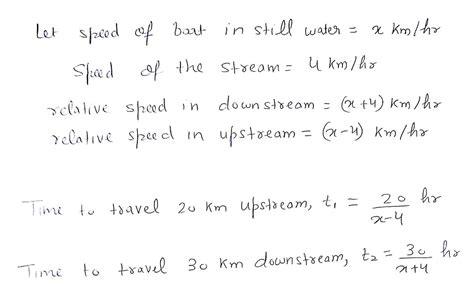 Let speed of boat in still water = x km/hr
Speed of the stream = 4 km/hr
relative speed in downstream = (x+4) km/hr
relative speed in upstream = (x-4) km/hr
Time to travel 20 km upstream, t₁ = 20/(x-4) hr
Time to travel 30 km downstream, t₂ = 30/(x+4) hr